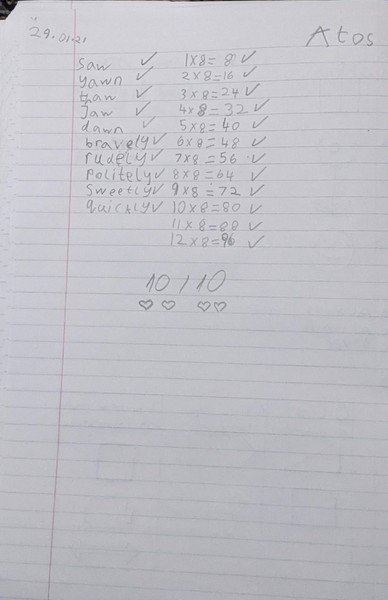 29.01.21 Atos
saw ✓ 1x8= 8 ✓
yawn ✓ 2x8=16 ✓
thaw ✓ 3x8=24 ✓
Jaw ✓ 4x8=32 ✓
dawn ✓ 5x8=40 ✓
bravely ✓ 6x8=48 ✓
rudely ✓ 7x8=56 ✓
Politely ✓ 8x8=64 ✓
Sweetly ✓ 9x8=72 ✓
quickly ✓ 10x8=80 ✓
11x8=88 ✓
12x8=96 ✓
10/10
♡ ♡ ♡ ♡